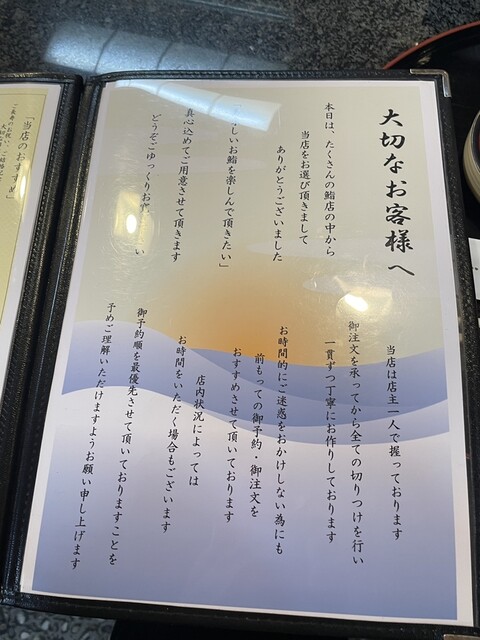 大切なお客様へ
本日は、たくさんの鮨店の中から
当店をお選び頂きまして
ありがとうございました
しいお鮨を楽しんで頂きたい」
真心込めてご用意させて頂きます
どうぞごゆっくりお
い
当店は店主一人で握っております
御注文を承ってから全ての切りつけを行い
一貫ずつ丁寧にお作りしております
お時間的にご迷惑をおかけしない為にも
前もっての御予約・御注文を
おすすめさせて頂いております
店内状況によっては
お時間をいただく場合もございます
御予約順を最優先させて頂いておりますことを
予めご理解いただけますようお願い申し上げます
「当店のおすすめ」